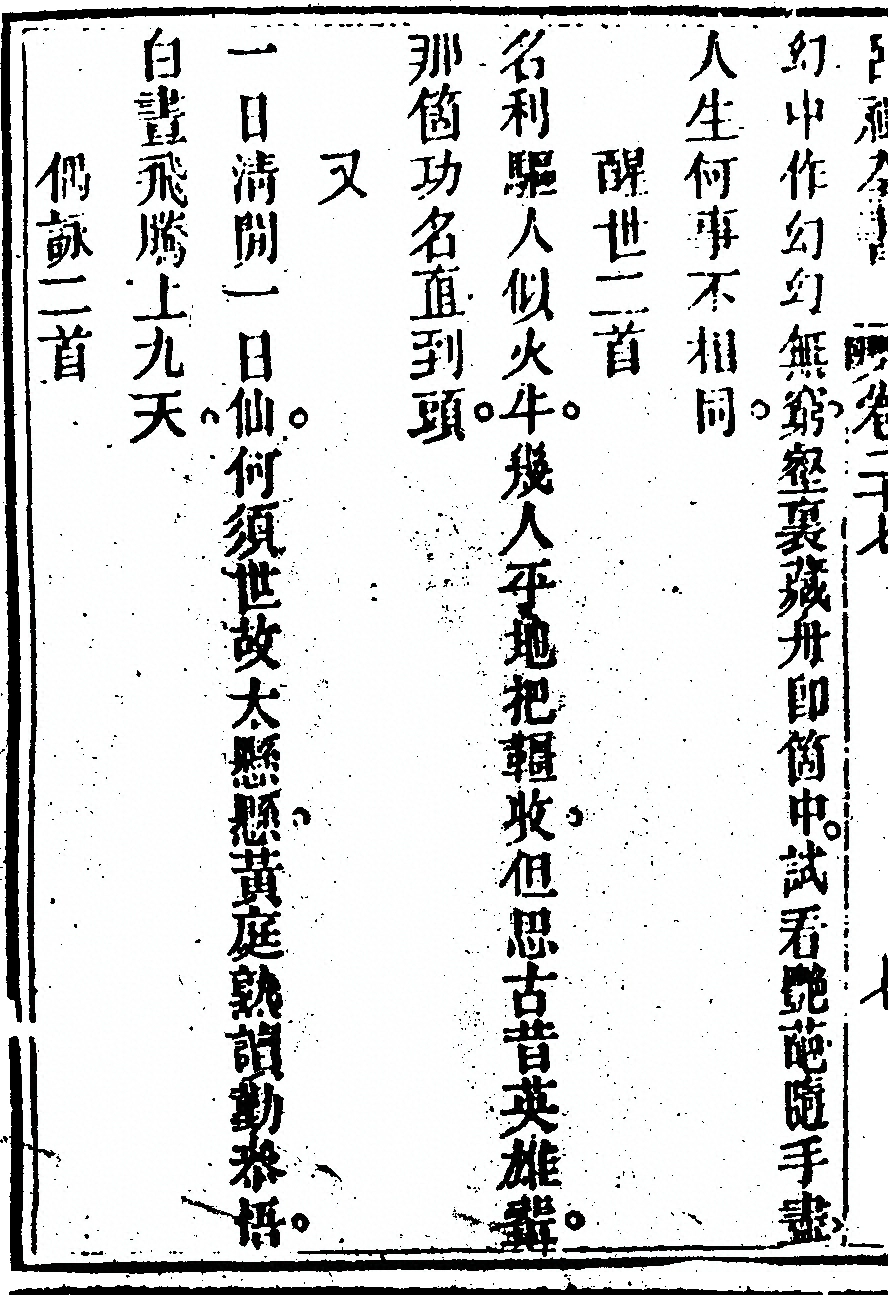 卷二十七
幻中作幻幻無窮。壑裏藏舟即箇中。試看艷葩隨手盡。
人生何事不相同。
醒世二首
名利驅人似火牛。幾人平地把韁收。但思古昔英雄輩。
那箇功名直到頭。
又
一日清閒一日仙。何須世故太懸懸。黃庭熟讀勤參悟。
白晝飛騰上九天。
偶詠二首